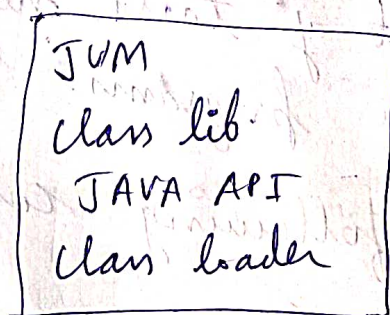 JVM
class lib.
JAVA API
class loader